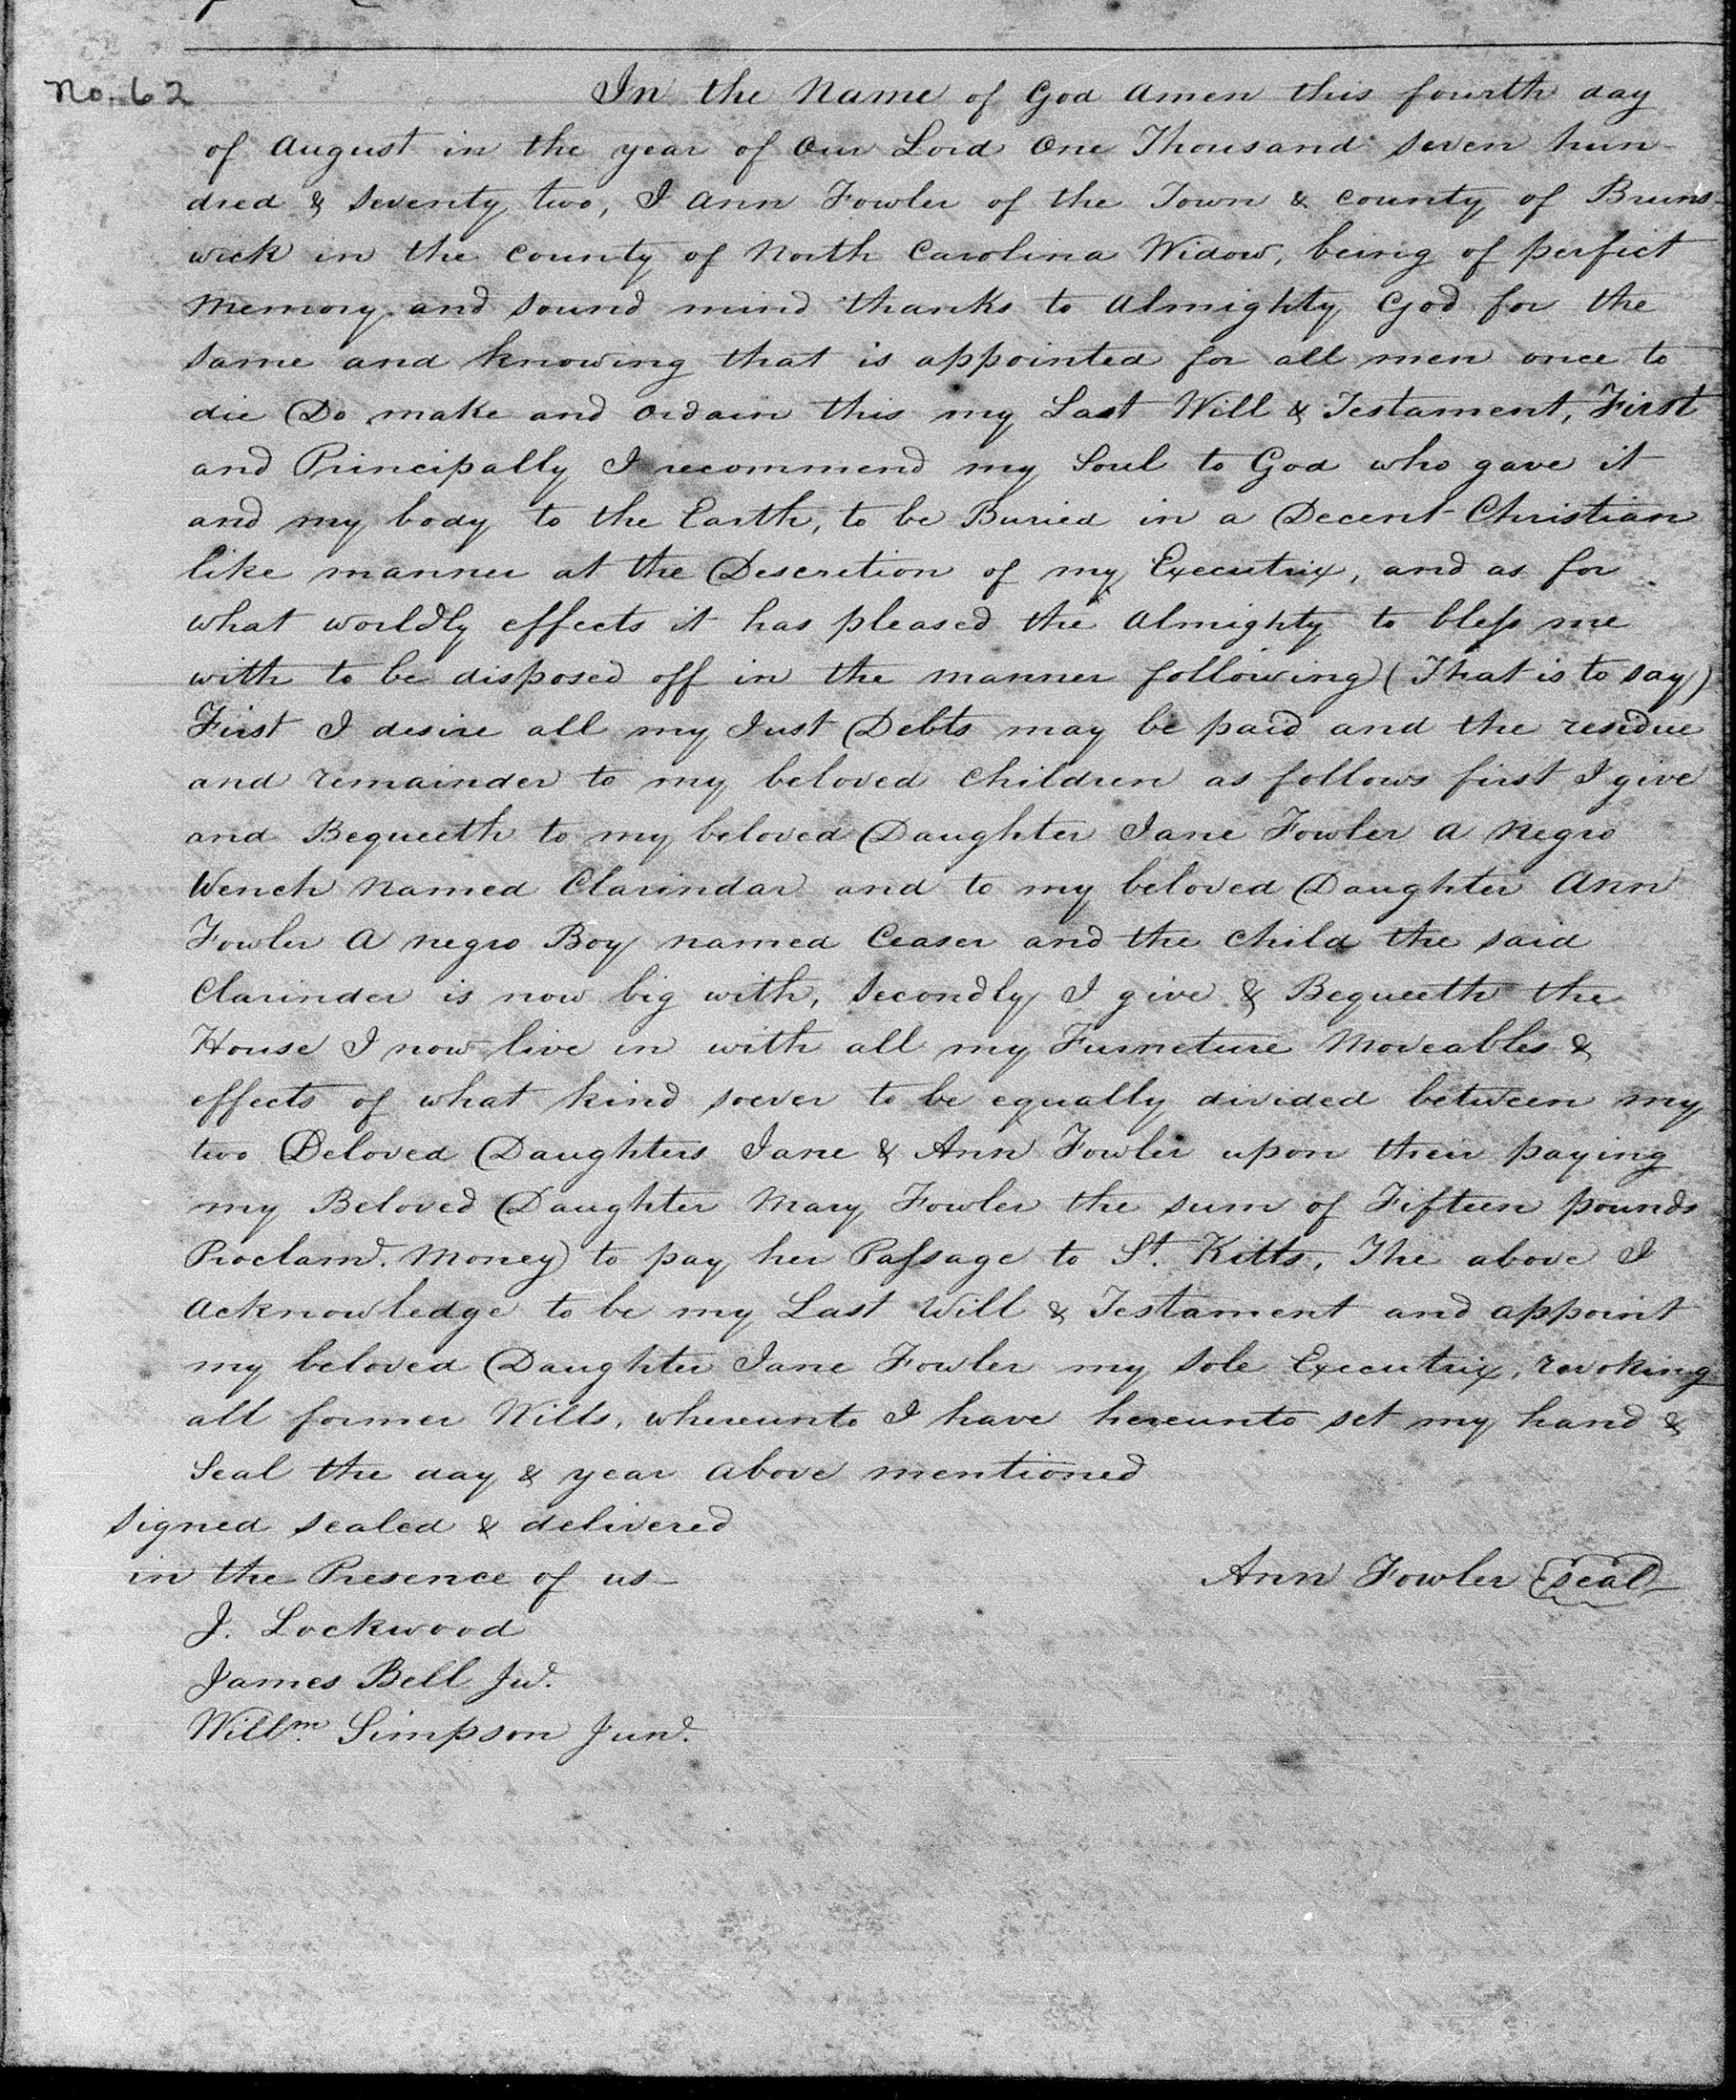 No. 62
In the Name of God Amen this fourth day
of August in the year of Our Lord One Thousand Seven hun-
dred & Seventy two, I Ann Fowler of the Town & County of Bruns-
wick in the County of North Carolina Widow, being of perfict
Memory and Sound mind thanks to Almighty God for the
Same and knowing that is appointed for all men once to
die Do make and Ordain this my Last Will & Testament, First
and Principally I recommend my Soul to God who gave it
and my body to the Earth, to be Buried in a Decent Christian
like manner at the Descretion of my Executrix, and as for
what worldly effects it has pleased the Almighty to bless me
with to be disposed off in the manner following (That is to say)
First I desire all my Just Debts may be paid and the residue
and remainder to my beloved Children as follows first I give
and Bequeeth to my beloved Daughter Jane Fowler a Negro
Wench Named Clarindar and to my beloved Daughter Ann
Fowler a negro Boy named Ceaser and the Child the said
Clarinder is now big with, Secondly I give & Bequeeth the
House I now live in with all my Furneture Moveables &
effects of what kind soever to be equally divided between my
two Beloved Daughters Jane & Ann Fowler upon their paying
my Beloved Daughter Mary Fowler the sum of Fifteen pounds
Proclamd. Money to pay her Passage to St. Kitts, The above I
Acknowledge to be my Last Will & Testament and appoint
my beloved Daughter Jane Fowler my Sole Executrix, revoking
all former Wills, whereunto I have hereunto set my hand &
Seal the day & year above mentioned
Signed sealed & delivered
in the Presence of us
Ann Fowler seal
J. Lockwood
James Bell Jur.
Willm. Simpson Junr.